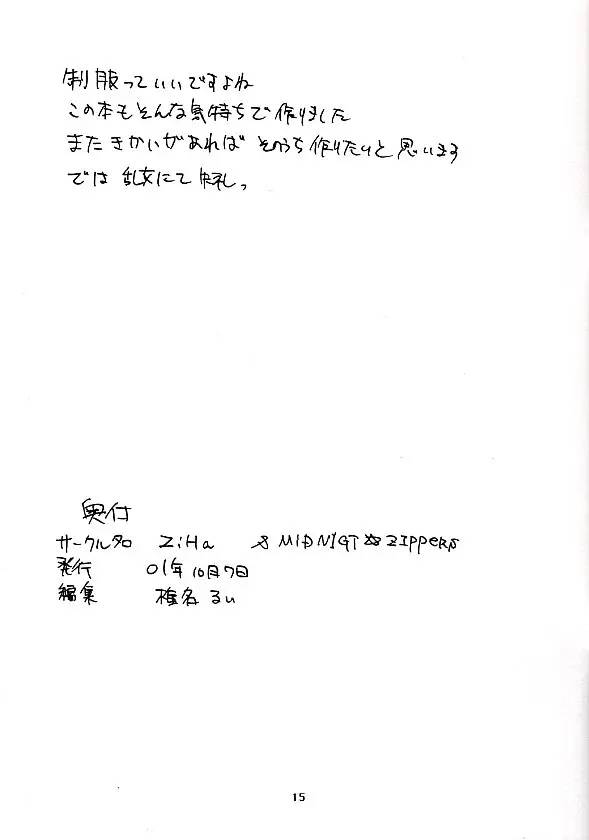 制服っていいですよね
この本もそんな気持ちで作りました
またきかいがあれば そのうち作りたいと思います
では 乱文にて 失礼。
奥付
サークル名 ZiHa & MIDNIGT☆ZIPPERS
発行 01年10月7日
編集 椎名 るい
15